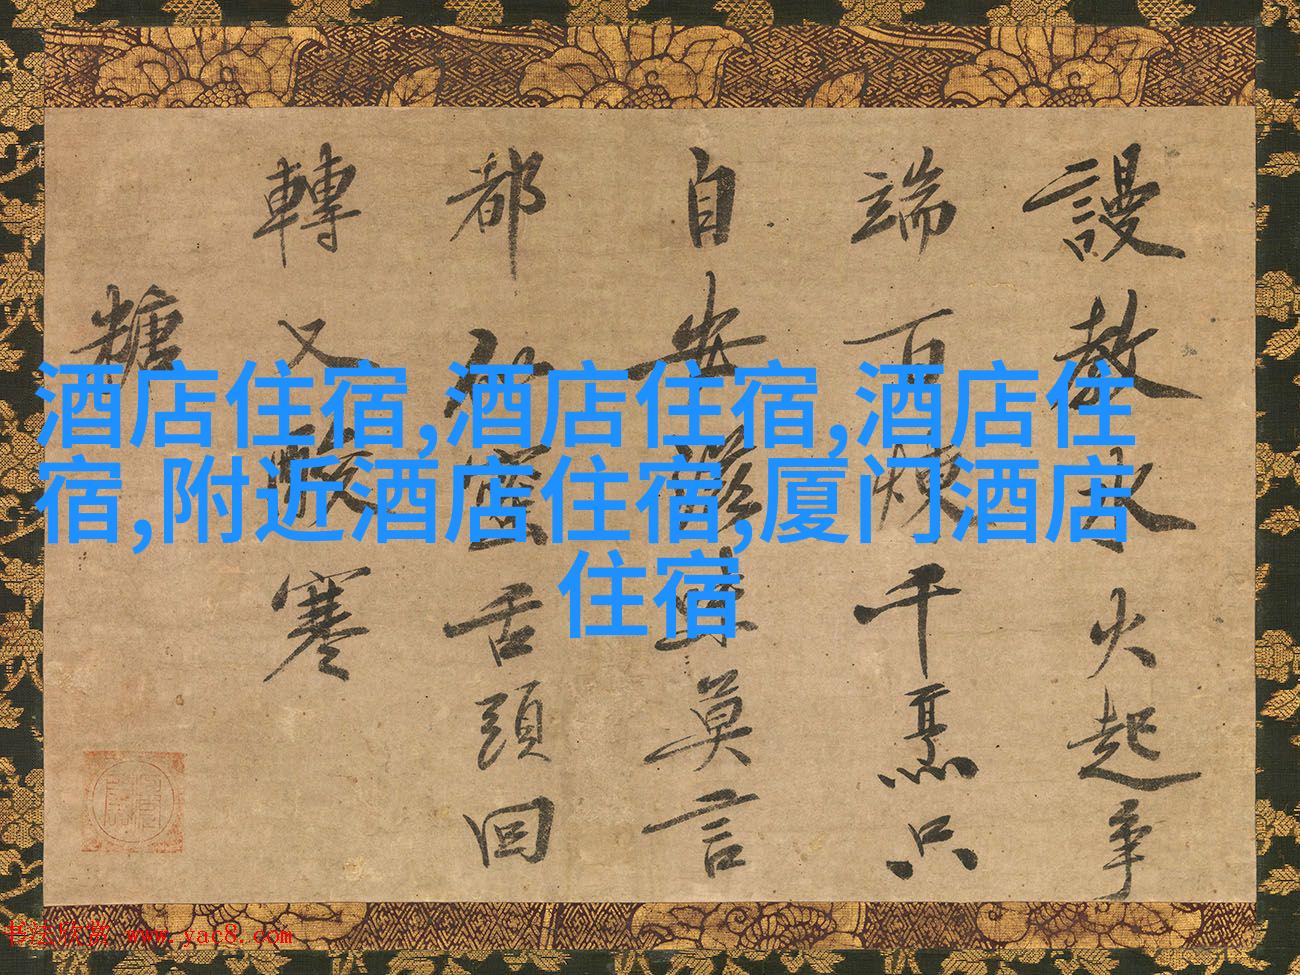 謾教水火起争
端百煉千熏只
自安滋味莫言
都蜜舌頭回
轉又酸寒
糖
酒店住宿,酒店住宿,酒店住
宿,附近酒店住宿,厦门酒店
住宿
书法欣赏 www.yac8.com